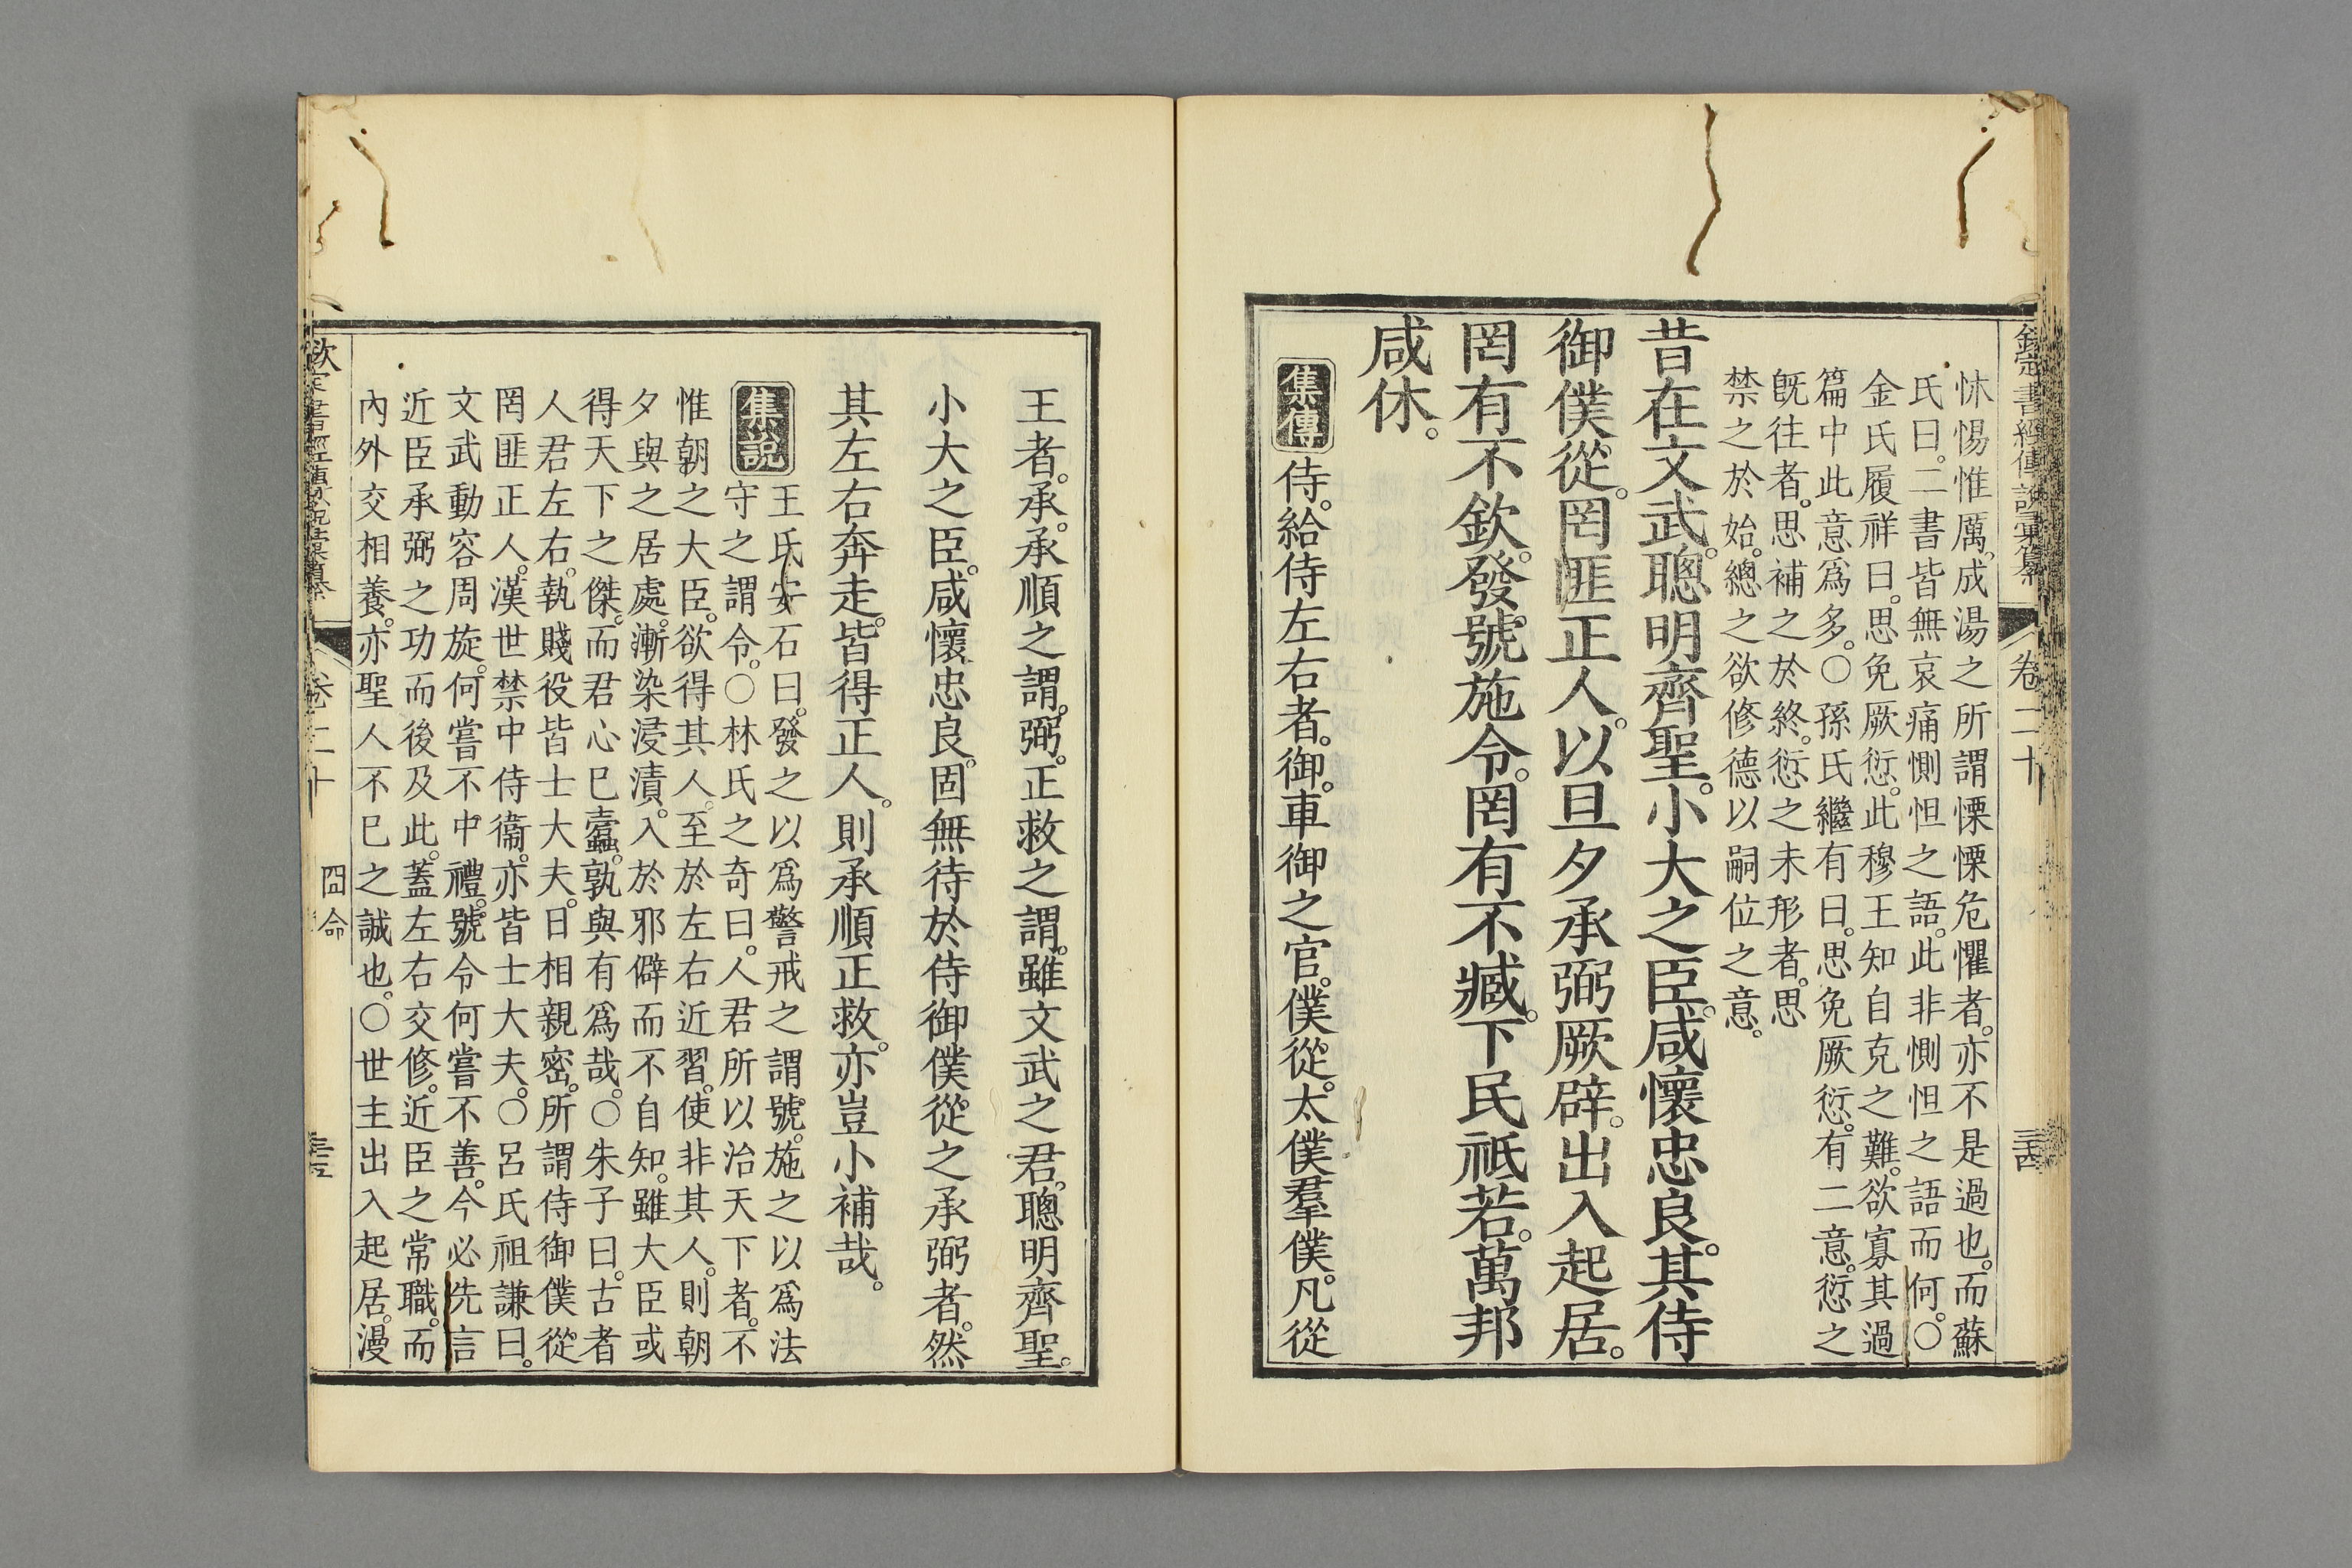 欽定書經傳說彙纂 卷二十 三十四
怵惕惟厲。成湯之所謂慄慄危懼者。亦不是過也。而蘇
氏曰。二書皆無哀痛惻怛之語。此非惻怛之語而何。○
金氏履祥曰。思免厥愆。此穆王知自克之難。欲寡其過
篇中此意爲多。○孫氏繼有曰。思免厥愆。有二意。愆之
既往者。思補之於終。愆之未形者。思
禁之於始。總之欲修德以嗣位之意。
昔在文武。聰明齊聖。小大之臣。咸懷忠良。其侍
御僕從。罔匪正人。以旦夕承弼厥辟。出入起居。
罔有不欽。發號施令。罔有不臧。下民祗若。萬邦
咸休。
集傳 侍。給侍左右者。御。車御之官。僕從。太僕羣僕。凡從
王者。承。承順之謂。弼。正救之謂。雖文武之君。聰明齊聖。
小大之臣。咸懷忠良。固無待於侍御僕從之承弼者。然
其左右奔走。皆得正人。則承順正救。亦豈小補哉。
集說 王氏安石曰。發之以爲警戒之謂號。施之以爲法
守之謂令。○林氏之奇曰。人君所以治天下者。不
惟朝之大臣。欲得其人。至於左右近習。使非其人。則朝
夕與之居處。漸染浸漬。入於邪僻而不自知。雖大臣或
得天下之傑。而君心已蠹。孰與有爲哉。○朱子曰。古者
人君左右。執賤役皆士大夫。日相親密。所謂侍御僕從
罔匪正人。漢世禁中侍衞。亦皆士大夫。○呂氏祖謙曰。
文武動容周旋。何嘗不中禮。號令何嘗不善。今必先言
近臣承弼之功而後及此。蓋左右交修。近臣之常職。而
內外交相養。亦聖人不已之誠也。○世主出入起居。漫
欽定書經傳說彙纂 卷二十 冏命 三十五